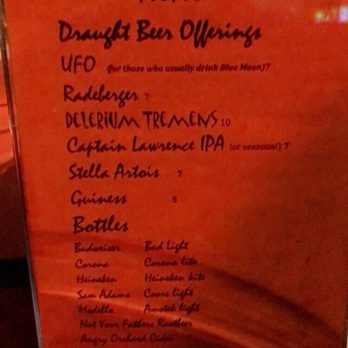 Draught Beer Offerings
UFO (for those who usually drink Blue Moon)7
Radeberger 7
DELERIUM TREMENS 10
Captain Lawrence IPA (or seasonal) 7
Stella Artois 7
Guiness 8
Bottles
Budweiser Bud Light
Corona Corona lite
Heineken Heineken kite
Sam Adams Coors light
Modello Amstek light
Not Your Fathers Rootbeer
Angry Orchard Cider